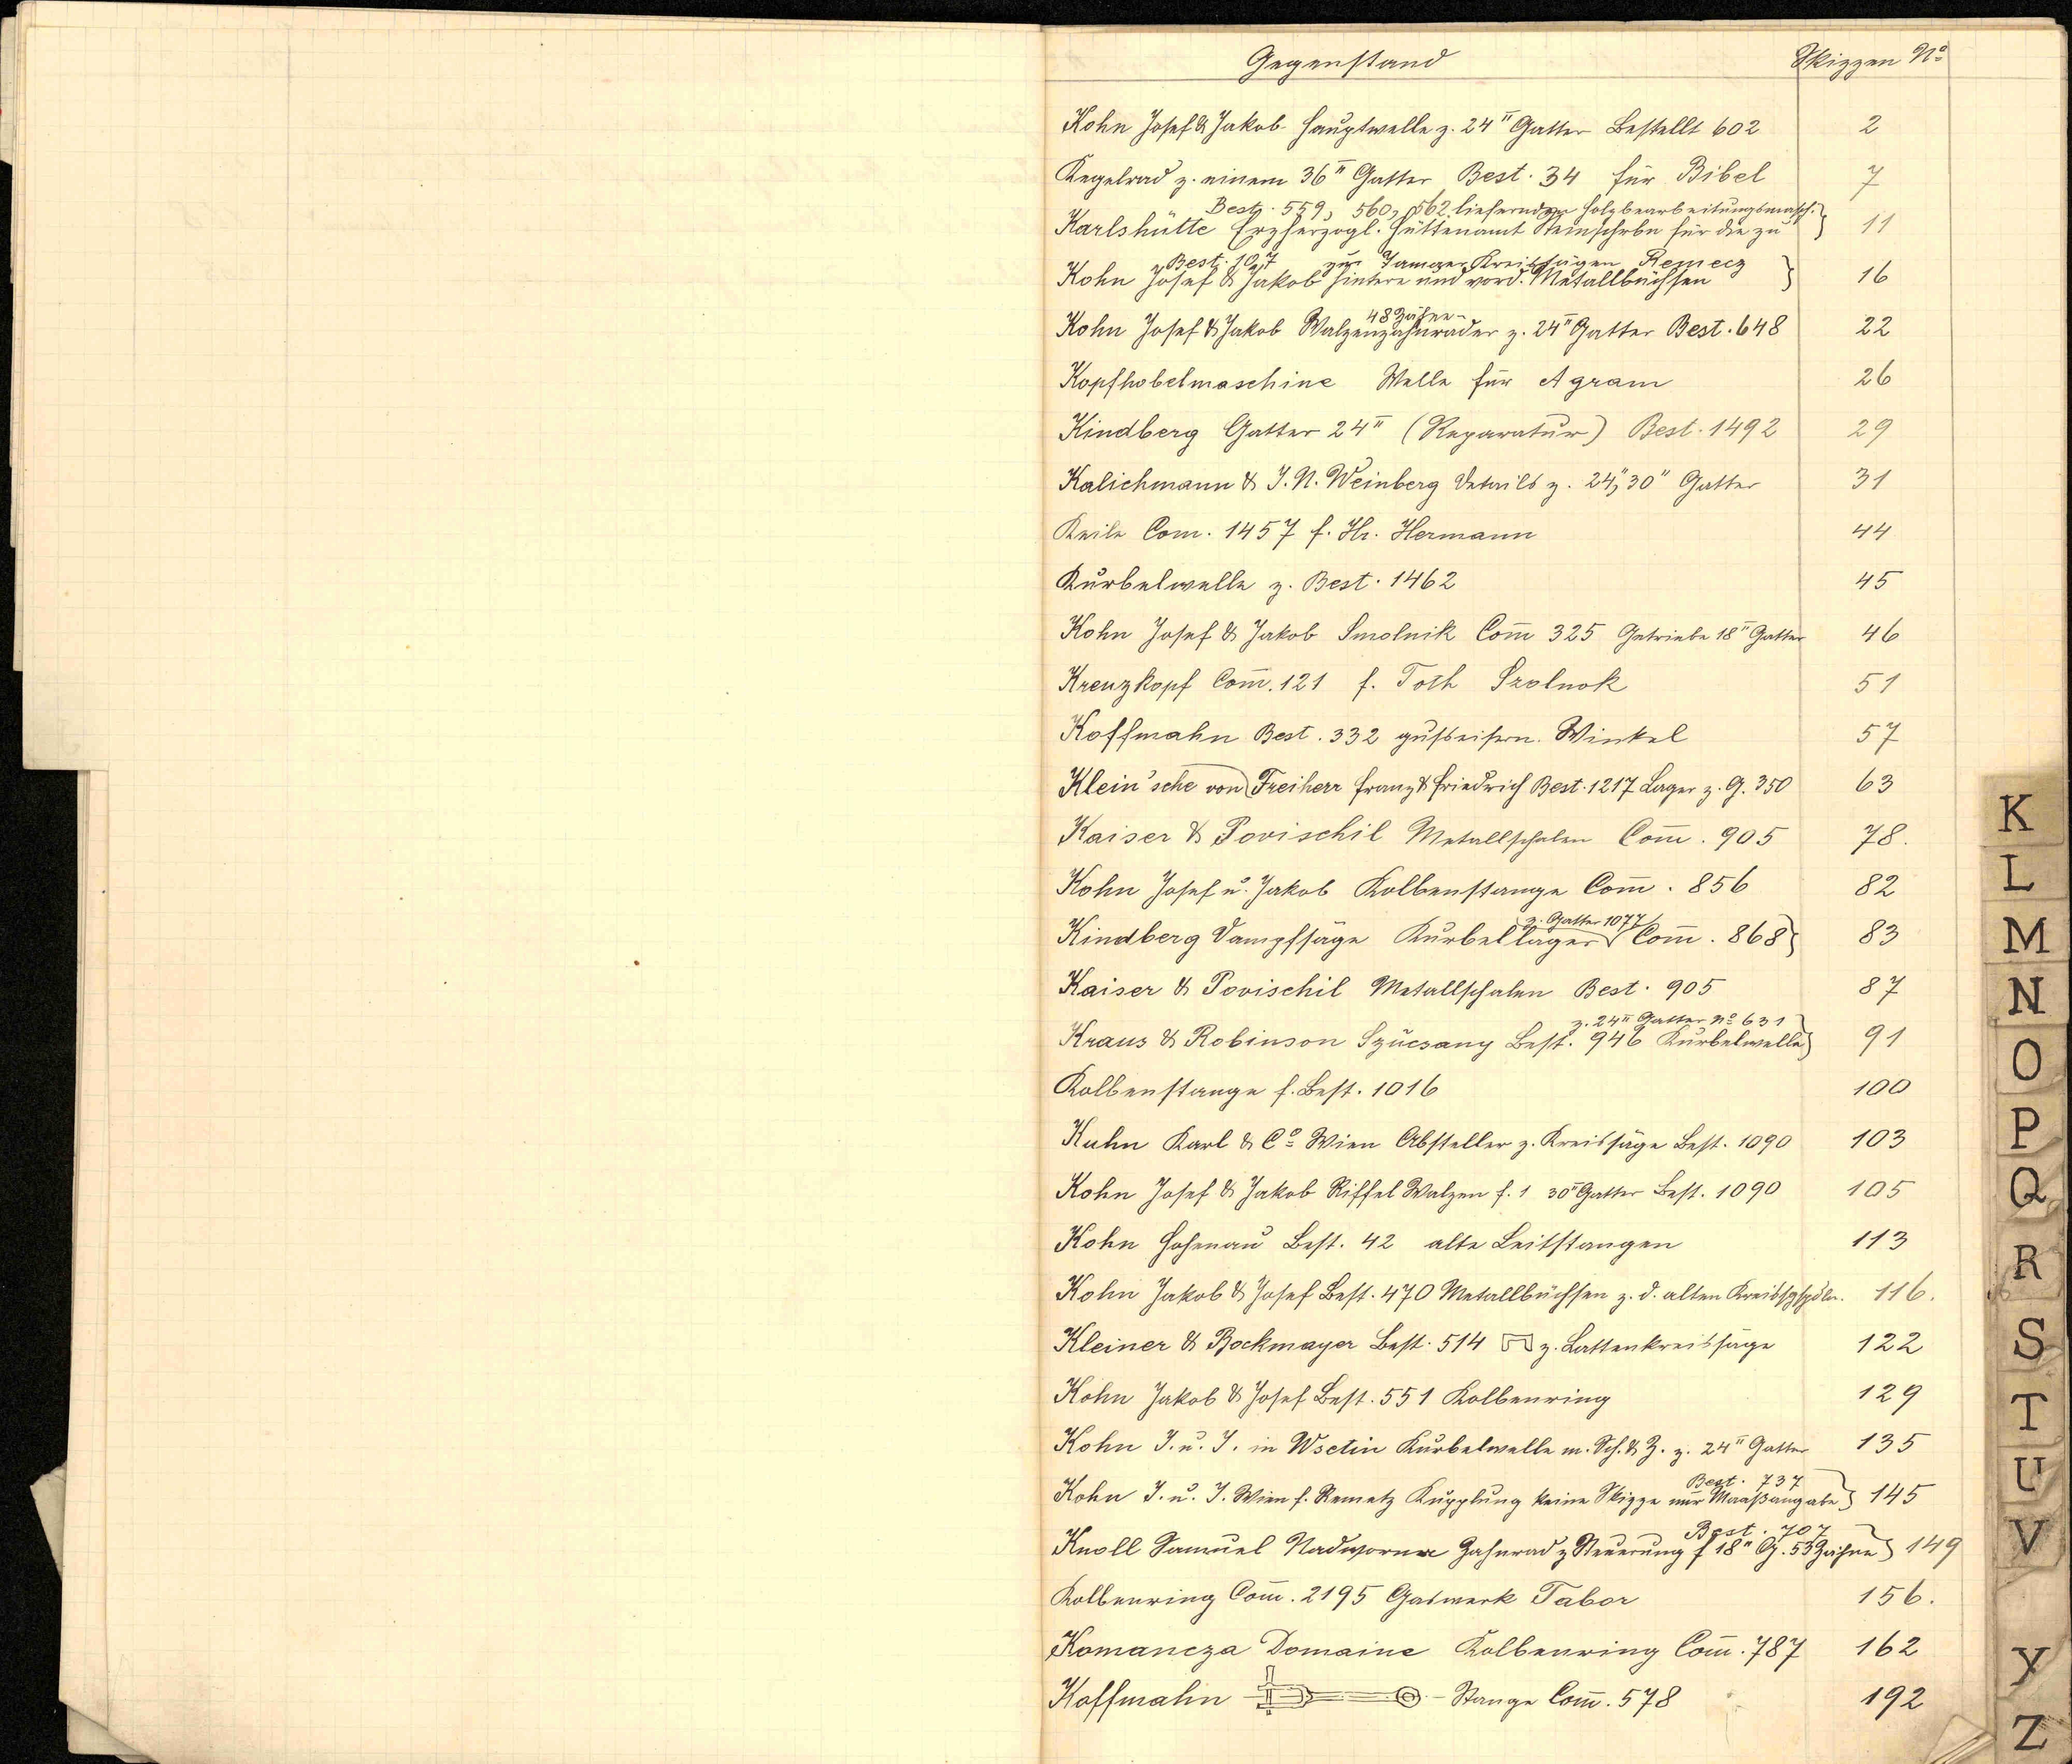 Gegenstand Skizzen No
Kohn Josef & Jakob Hauptwelle z. 24" Gatter Bestellt 602 2
Kegelrad z. einem 36" Gatter Best. 34 für Bibel 7
Best. 559, 560, 562 liefernden Holzbearbeitungsmasch.
Karlshütte Erzherzogl. Hüttenamt für die zu 11
Best. 107 zur Kreissägen Remecz
Kohn Josef & Jakob hintere und vord. Metallbüchsen 16
48 Zähne
Kohn Josef & Jakob Walzenzahnräder z. 24" Gatter Best. 648 22
Kopfhobelmaschine Welle für Agram 26
Kindberg Gatter 24" (Reparatur) Best. 1492 29
Kalichmann & J. N. Weinberg Details z. 24", 30" Gatter 31
Keile Com. 1457 f. Hr. Hermann 44
Kurbelwelle z. Best. 1462 45
Kohn Josef & Jakob Smolnik Com̄ 325 Getriebe 18" Gatter 46
Kreuzkopf Com̄. 121 f. Toth Szolnok 51
Koffmahn Best. 332 gußeisern. Winkel 57
Klein'sche von Freiherr Franz & Friedrich Best. 1217 Lager z. G. 350 63
Kaiser & Povischil Metallschalen Com̄. 905 78.
Kohn Josef u. Jakob Kolbenstange Com̄. 856 82
z. Gatter 1077
Kindberg Dampfsäge Kurbellager Com̄. 868 83
Kaiser & Povischil Metallschalen Best. 905 87
z. 24" Gatter No 631
Kraus & Robinson Szúcsany Best. 946 Kurbelwelle 91
Kolbenstange f. Best. 1016 100
Kuhn Karl & Co Wien Absteller z. Kreissäge Best. 1090 103
Kohn Josef & Jakob Riffel Walzen f. 1 30" Gatter Best. 1090 105
Kohn Hohenau Best. 42 alte Leitstangen 113
Kohn Jakob & Josef Best. 470 Metallbüchsen z. d. alten 116.
Kleiner & Bockmayer Best. 514 z. Lattenkreissäge 122
Kohn Jakob & Josef Best. 551 Kolbenring 129
Kohn J. u. J. in Wsetin Kurbelwelle m. Sch. & Z. z. 24" Gatter 135
Best. 737
Kohn J. u. J. Wien f. Remetz Kupplung keine Skizze nur Maaßangabe 145
Best. 707
Knoll Samuel Nadworna Zahnrad z Steuerung f 18" G. 53 Zähne 149
Kolbenring Com̄. 2195 Gaswerk Tabor 156.
Komancza Domaine Kolbenring Com̄. 787 162
Koffmahn Stange Com̄. 578 192
K
L
M
N
O
P
Q
R
S
T
U
V
Y
Z